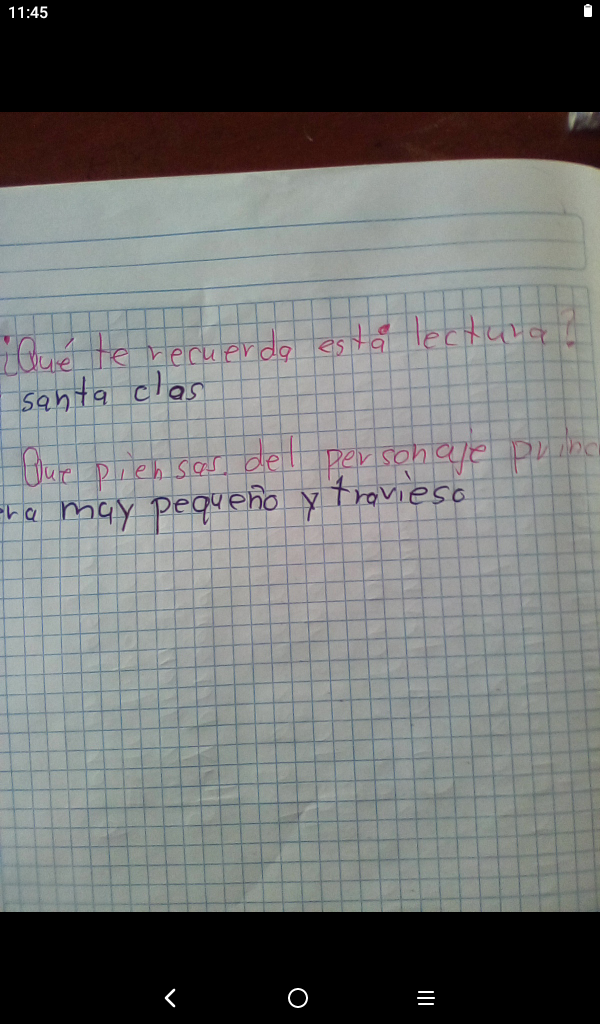 11:45
¿Qué te recuerda está lectura?
santa clas
Que piensas del personaje princ
ra muy pequeño y travieso